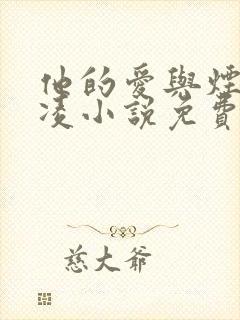 他的愛與煙
凌小說免費
慈大爺